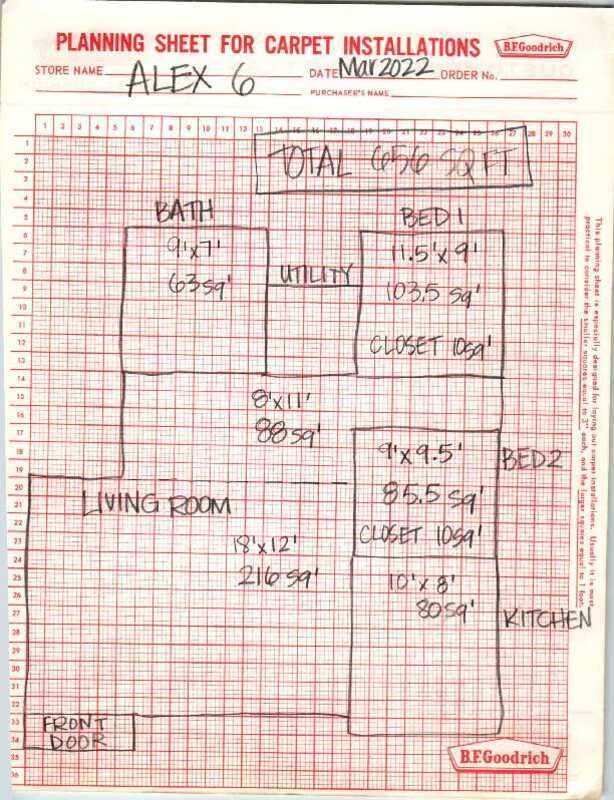 PLANNING SHEET FOR CARPET INSTALLATIONS B.F.Goodrich
STORE NAME ALEX 6 DATE Mar 2022 ORDER No.
PURCHASER'S NAME
1 2 3 4 5 6 7 8 9 10 11 12 13 14 15 16 17 18 19 20 21 22 23 24 25 26 27 28 29 30
TOTAL 656 SQ FT
BATH
9'x7'
63 sq'
UTILITY
BED 1
11.5'x 9'
103.5 sq'
CLOSET 10 sq'
8'x11'
88 sq'
9'x9.5'
BED 2
85.5 sq'
CLOSET 10 sq'
LIVING ROOM
18'x12'
216 sq'
10'x 8'
80 sq'
KITCHEN
FRONT
DOOR
B.F.Goodrich
1
2
3
4
5
6
7
8
9
10
11
12
13
14
15
16
17
18
19
20
21
22
23
24
25
26
27
28
29
30
31
32
33
34
35
36
This planning sheet is especially designed for laying out carpet installations. Usually it is most
practical to consider the smaller squares equal to 3" each, and the larger squares equal to 1 foot.